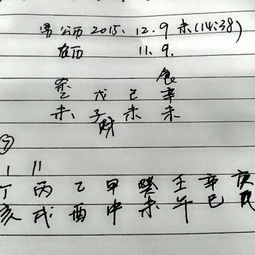 男 公历 2015. 12. 9 未(14:38)
农历 11. 9.
杀 食
乙 戊 己 辛
未 子 未 未
财
1 11
丁 丙 乙 甲 癸 壬 辛 庚
亥 戌 酉 申 未 午 巳 辰